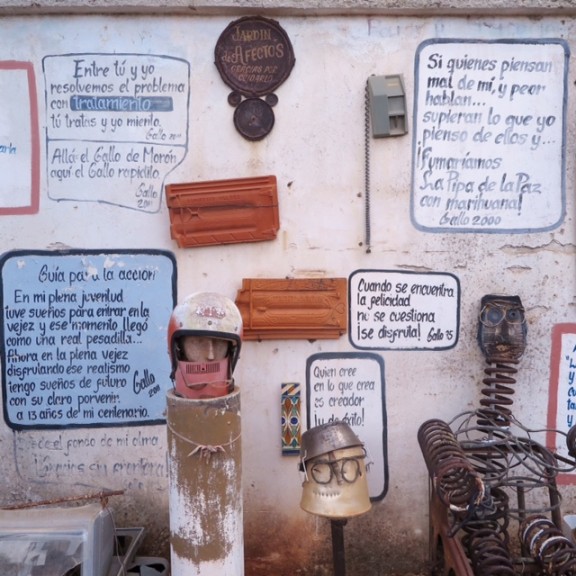 Entre tú y yo
resolvemos el problema
con tratamiento
tú tratas y yo miento.
Gallo
Allá el Gallo de Morón
aquí el Gallo
Gallo
JARDIN
de AFECTOS
Si quienes piensan
mal de mí, y peor
hablan...
supieran lo que yo
pienso de ellos y...
¡Fumaríamos
La Pipa de la Paz
con marihuana!
Gallo 2000
Guía pa a la acción
En mi plena juventud
tuve sueños para entrar en la
vejez y ese momento llegó
como una real pesadilla...
Ahora en la plena vejez
disfrutando ese realismo
tengo sueños de futuro
con su claro porvenir
a 13 años de mi centenario.
Gallo
de el fondo de mi alma
Cuando se encuentra
la felicidad
no se cuestiona
¡se disfruta! Gallo
Quien cree
en lo que crea
es creador